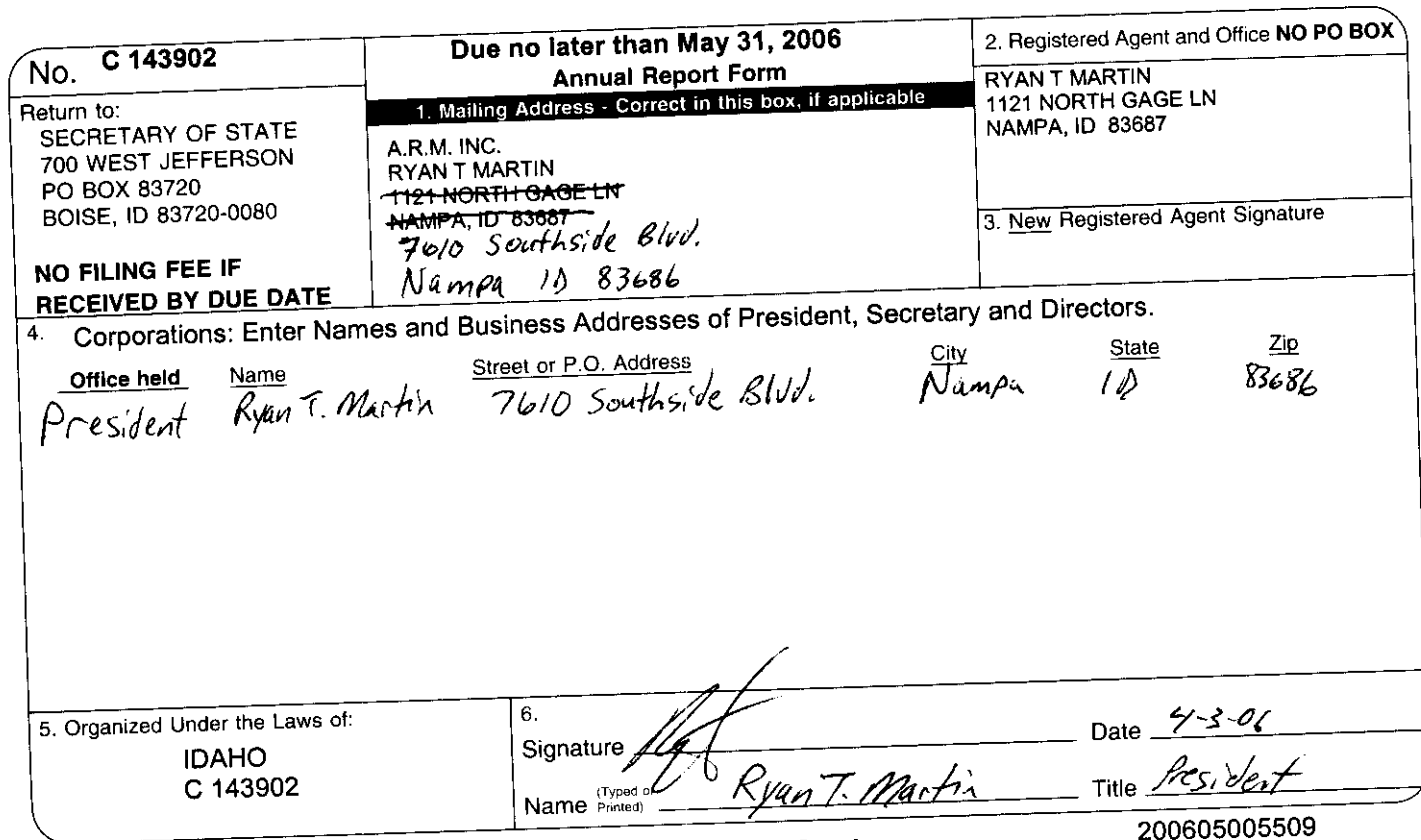 No. C 143902
Return to:
SECRETARY OF STATE
700 WEST JEFFERSON
PO BOX 83720
BOISE, ID 83720-0080
NO FILING FEE IF
RECEIVED BY DUE DATE
Due no later than May 31, 2006
Annual Report Form
1. Mailing Address - Correct in this box, if applicable
A.R.M. INC.
RYAN T MARTIN
1121 NORTH GAGE LN
NAMPA, ID 83687
7610 Southside Blvd.
Nampa ID 83686
2. Registered Agent and Office NO PO BOX
RYAN T MARTIN
1121 NORTH GAGE LN
NAMPA, ID 83687
3. New Registered Agent Signature
4. Corporations: Enter Names and Business Addresses of President, Secretary and Directors.
Office held Name Street or P.O. Address City State Zip
President Ryan T. Martin 7610 Southside Blvd. Nampa ID 83686
5. Organized Under the Laws of:
IDAHO
C 143902
6.
Signature Date 4-3-06
Name (Typed or Printed) Ryan T. Martin Title President
200605005509